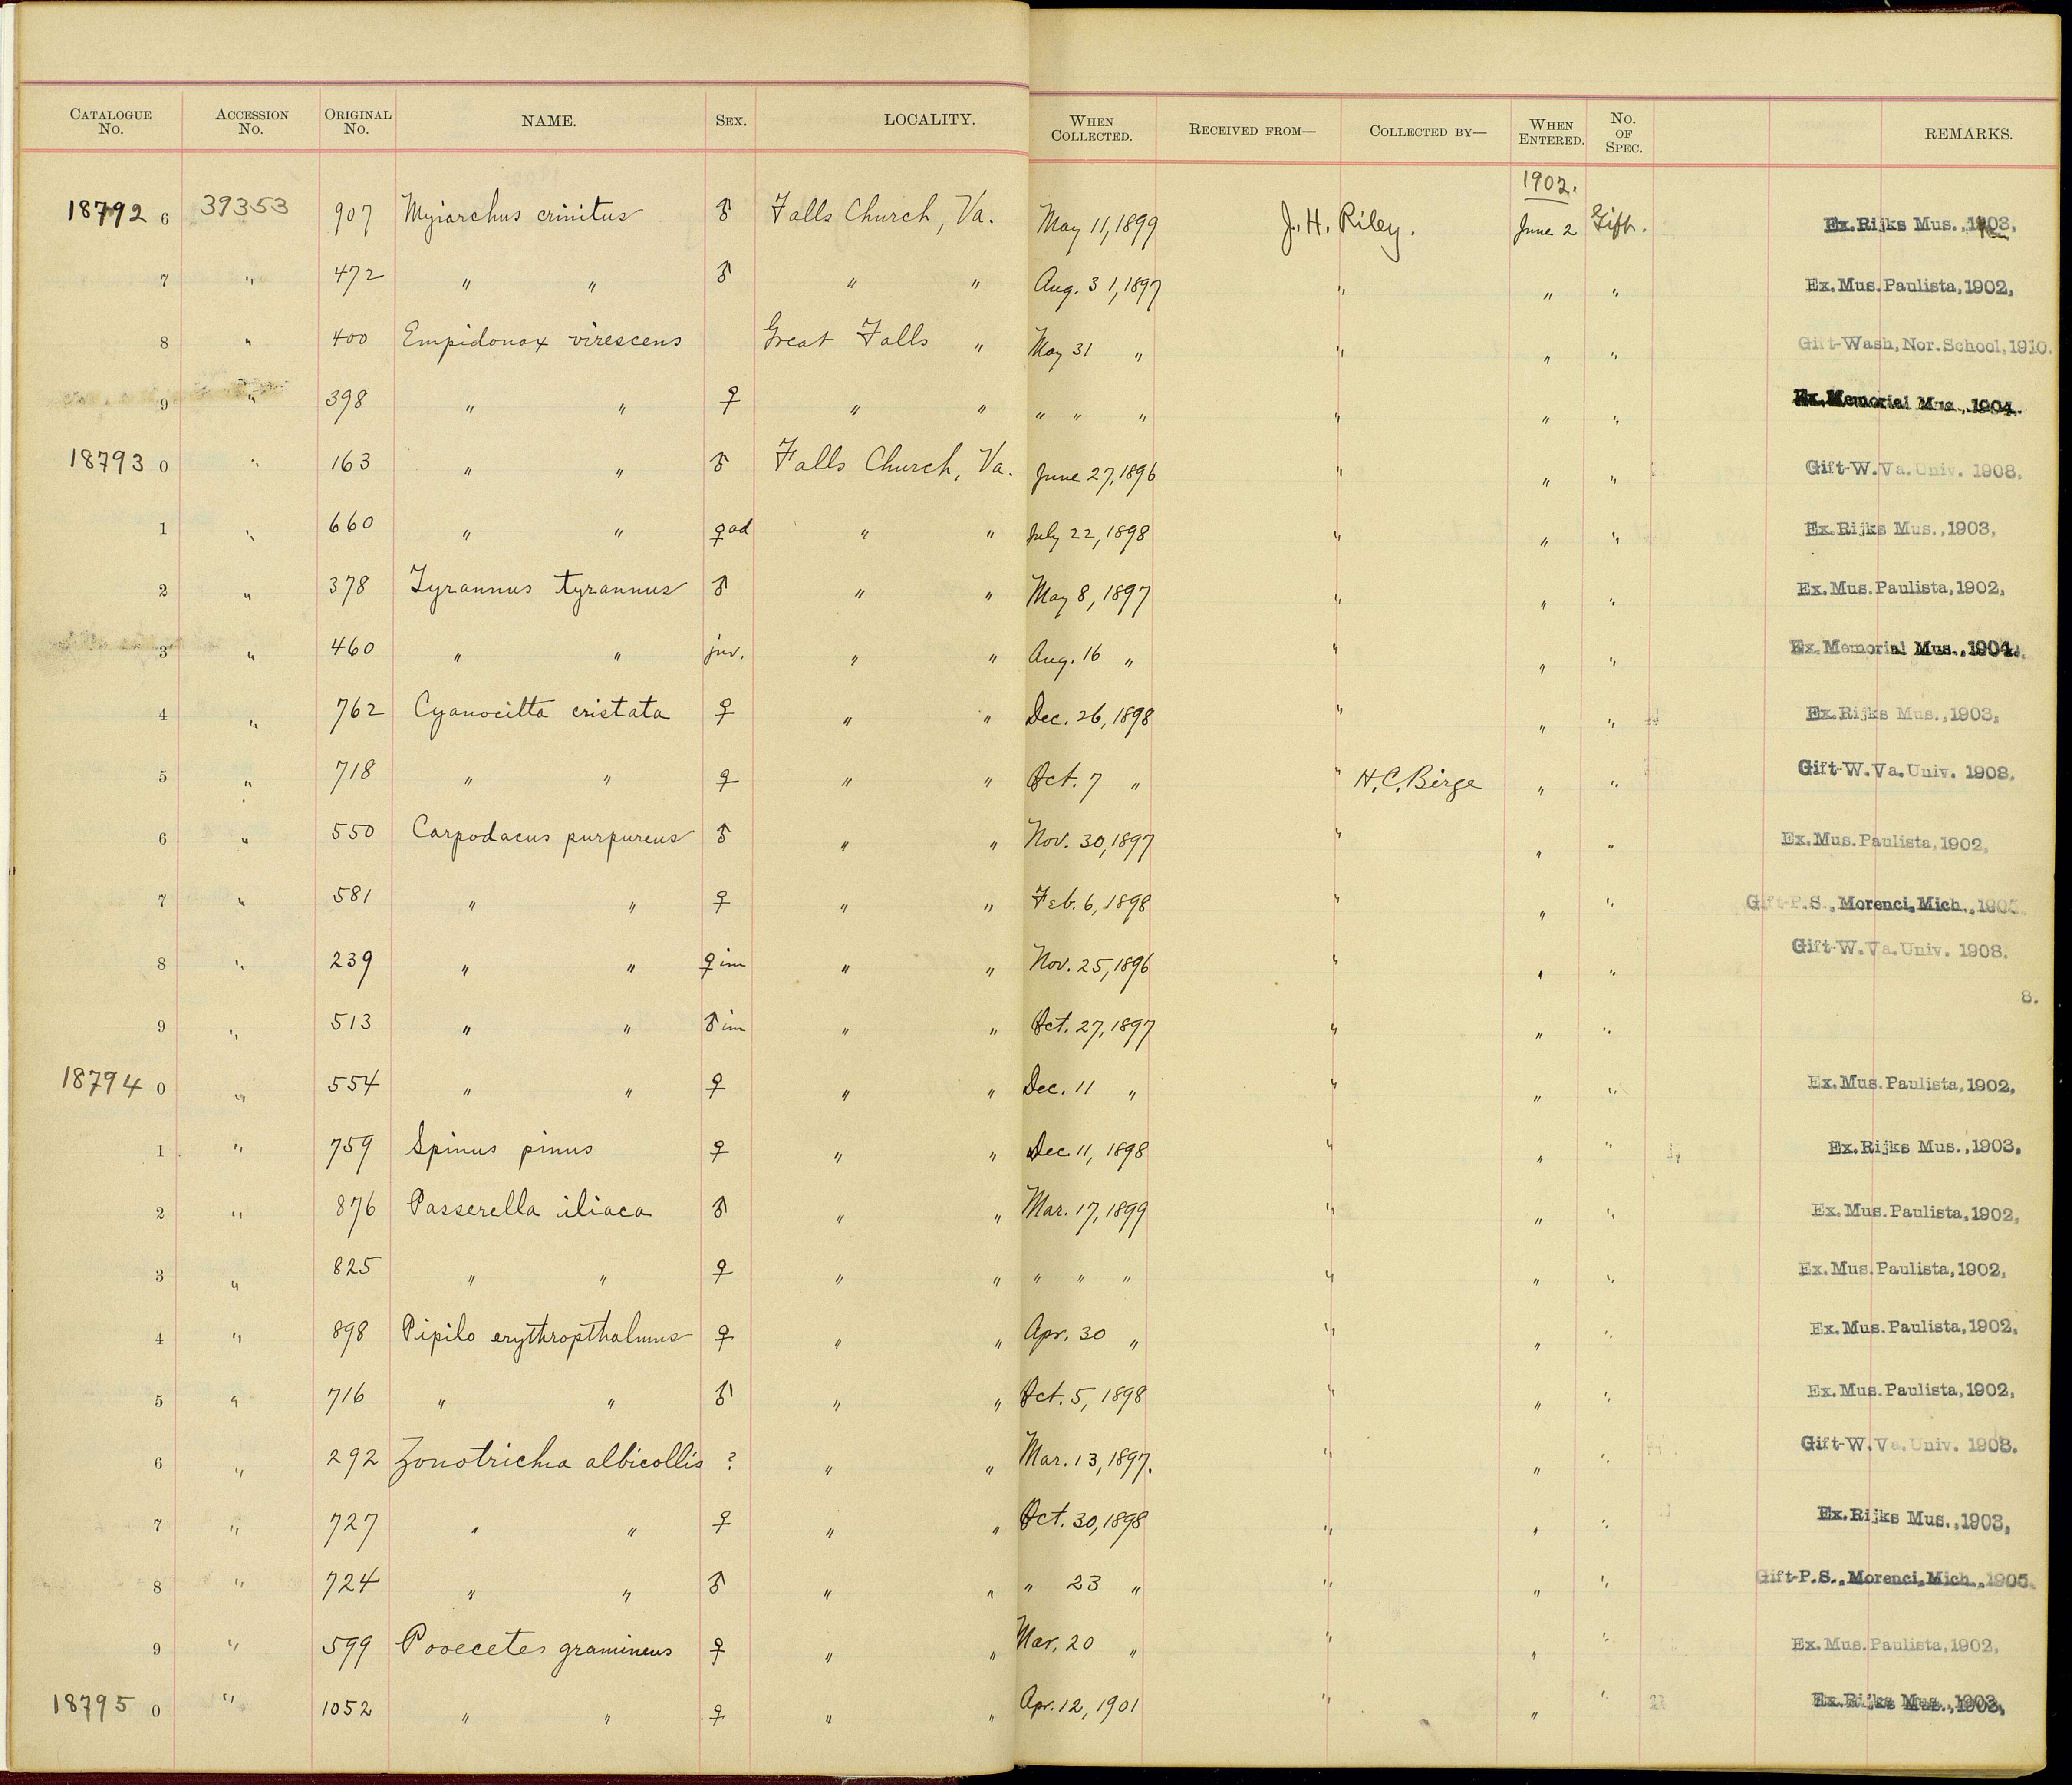 CATALOGUE No. ACCESSION No. ORIGINAL No. NAME. SEX. LOCALITY. WHEN COLLECTED. RECEIVED FROM— COLLECTED BY— WHEN ENTERED. No. OF SPEC. REMARKS.
1902.
18792 6 39353 907 Myiarchus crinitus ♂ Falls Church, Va. May 11, 1899 J. H. Riley. June 2 Gift. Ex. Rijks Mus., 1903,
7 " 472 " " ♂ " " Aug. 31, 1897 " " " Ex. Mus. Paulista, 1902,
8 " 400 Empidonax virescens Great Falls " May 31 " " " " Gift-Wash, Nor. School, 1910.
9 " 398 " " ♀ " " " " " " " " Ex. Memorial Mus., 1904.
18793 0 " 163 " " ♂ Falls Church, Va. June 27, 1896 " " " Gift-W. Va. Univ. 1908.
1 " 660 " " ♀ ad " " July 22, 1898 " " " Ex. Rijks Mus., 1903,
2 " 378 Tyrannus tyrannus ♂ " " May 8, 1897 " " " Ex. Mus. Paulista, 1902,
3 " 460 " " juv. " " Aug. 16 " " " " Ex. Memorial Mus., 1904.
4 " 762 Cyanocitta cristata ♀ " " Dec. 26, 1898 " " " Ex. Rijks Mus., 1903,
5 " 718 " " ♀ " " Oct. 7 " " H. C. Birge " " Gift-W. Va. Univ. 1908.
6 " 550 Carpodacus purpureus ♂ " " Nov. 30, 1897 " " " Ex. Mus. Paulista, 1902,
7 " 581 " " ♀ " " Feb. 6, 1898 " " " Gift-P.S., Morenci, Mich., 1905.
8 " 239 " " ♀ im " " Nov. 25, 1896 " " " Gift-W. Va. Univ. 1908.
8.
9 " 513 " " ♂ im " " Oct. 27, 1897 " " "
18794 0 " 554 " " ♀ " " Dec. 11 " " " " Ex. Mus. Paulista, 1902,
1 " 759 Spinus pinus ♀ " " Dec. 11, 1898 " " " Ex. Rijks Mus., 1903,
2 " 876 Passerella iliaca ♂ " " Mar. 17, 1899 " " " Ex. Mus. Paulista, 1902,
3 " 825 " " ♀ " " " " " " " " Ex. Mus. Paulista, 1902,
4 " 898 Pipilo erythropthalmus ♀ " " Apr. 30 " " " " Ex. Mus. Paulista, 1902,
5 " 716 " " ♂ " " Oct. 5, 1898 " " " Ex. Mus. Paulista, 1902,
6 " 292 Zonotrichia albicollis ? " " Mar. 13, 1897. " " " Gift-W. Va. Univ. 1908.
7 " 727 " " ♀ " " Oct. 30, 1898 " " " Ex. Rijks Mus., 1903,
8 " 724 " " ♂ " " " 23 " " " " Gift-P.S., Morenci, Mich., 1905.
9 " 599 Poœcetes gramineus ♀ " " Mar. 20 " " " " Ex. Mus. Paulista, 1902,
18795 0 " 1052 " " ♀ " " Apr. 12, 1901 " " " Ex. Rijks Mus., 1903,